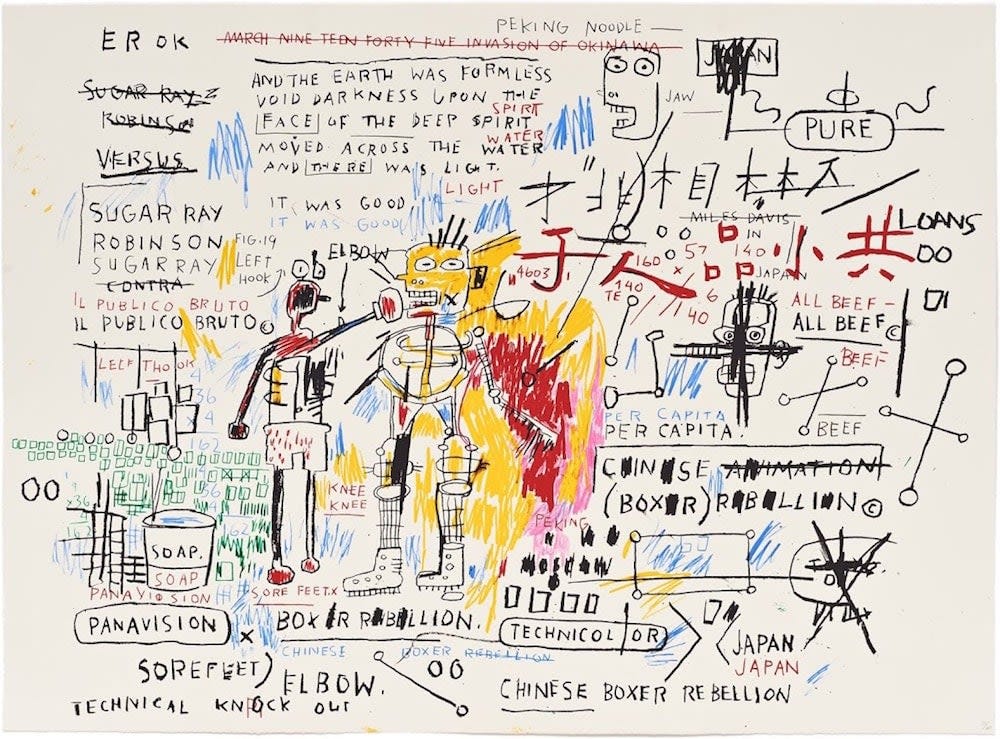 PEKING NOODLE —
ER OK
MARCH NINE TEEN FORTY FIVE INVASION OF OKINAWA
JAPAN
SUGAR RAY
ROBINSO
VERSUS
AND THE EARTH WAS FORMLESS
VOID DARKNESS UPON THE
SPIRIT
FACE OF THE DEEP SPIRIT
WATER
MOVED ACROSS THE WATER
AND THERE WAS LIGHT.
LIGHT
JAW
PURE
IT WAS GOOD
IT WAS GOOD
SUGAR RAY
ROBINSON
SUGAR RAY
CONTRA
FIG.19
LEFT
HOOK
ELBOW
MILES DAVIS
IN
JAPAN
于人品小共
LOANS
OO
"4603
160 × 57
140
140
TE
6
40
IL PUBLICO BRUTO
IL PUBLICO BRUTO©
ALL BEEF —
ALL BEEF
BEEF
BEEF
LELF THO OK
4
36
4
162
PER CAPITA
PER CAPITA.
CHINESE ANIMATION
(BOXER) REBELLION©
OO
×36
KNEE
KNEE
SOAP.
SOAP
PEKING
MOSCOW
PANAVISION
PANAVISION
×
SORE FEET.X
BOXER REBELLION.
CHINESE BOXER REBELLION
TECHNICOLOR
JAPAN
JAPAN
SOREFEET)
ELBOW.
OO
TECHNICAL KNOCK OUT
CHINESE BOXER REBELLION